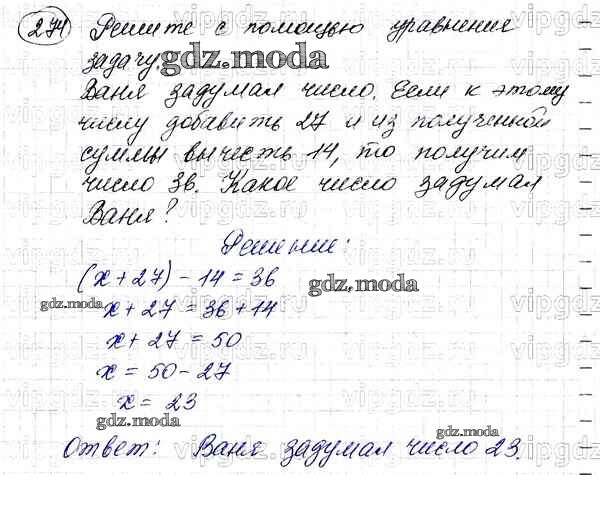 274 Решите с помощью уравнения
задачу:
Ваня задумал число. Если к этому
числу добавить 27 и из полученной
суммы вычесть 14, то получим
число 36. Какое число задумал
Ваня?
Решение:
(x + 27) - 14 = 36
x + 27 = 36 + 14
x + 27 = 50
x = 50 - 27
x = 23
Ответ: Ваня задумал число 23.
gdz.moda
gdz.moda
gdz.moda
gdz.moda
gdz.moda
vipgdz.ru